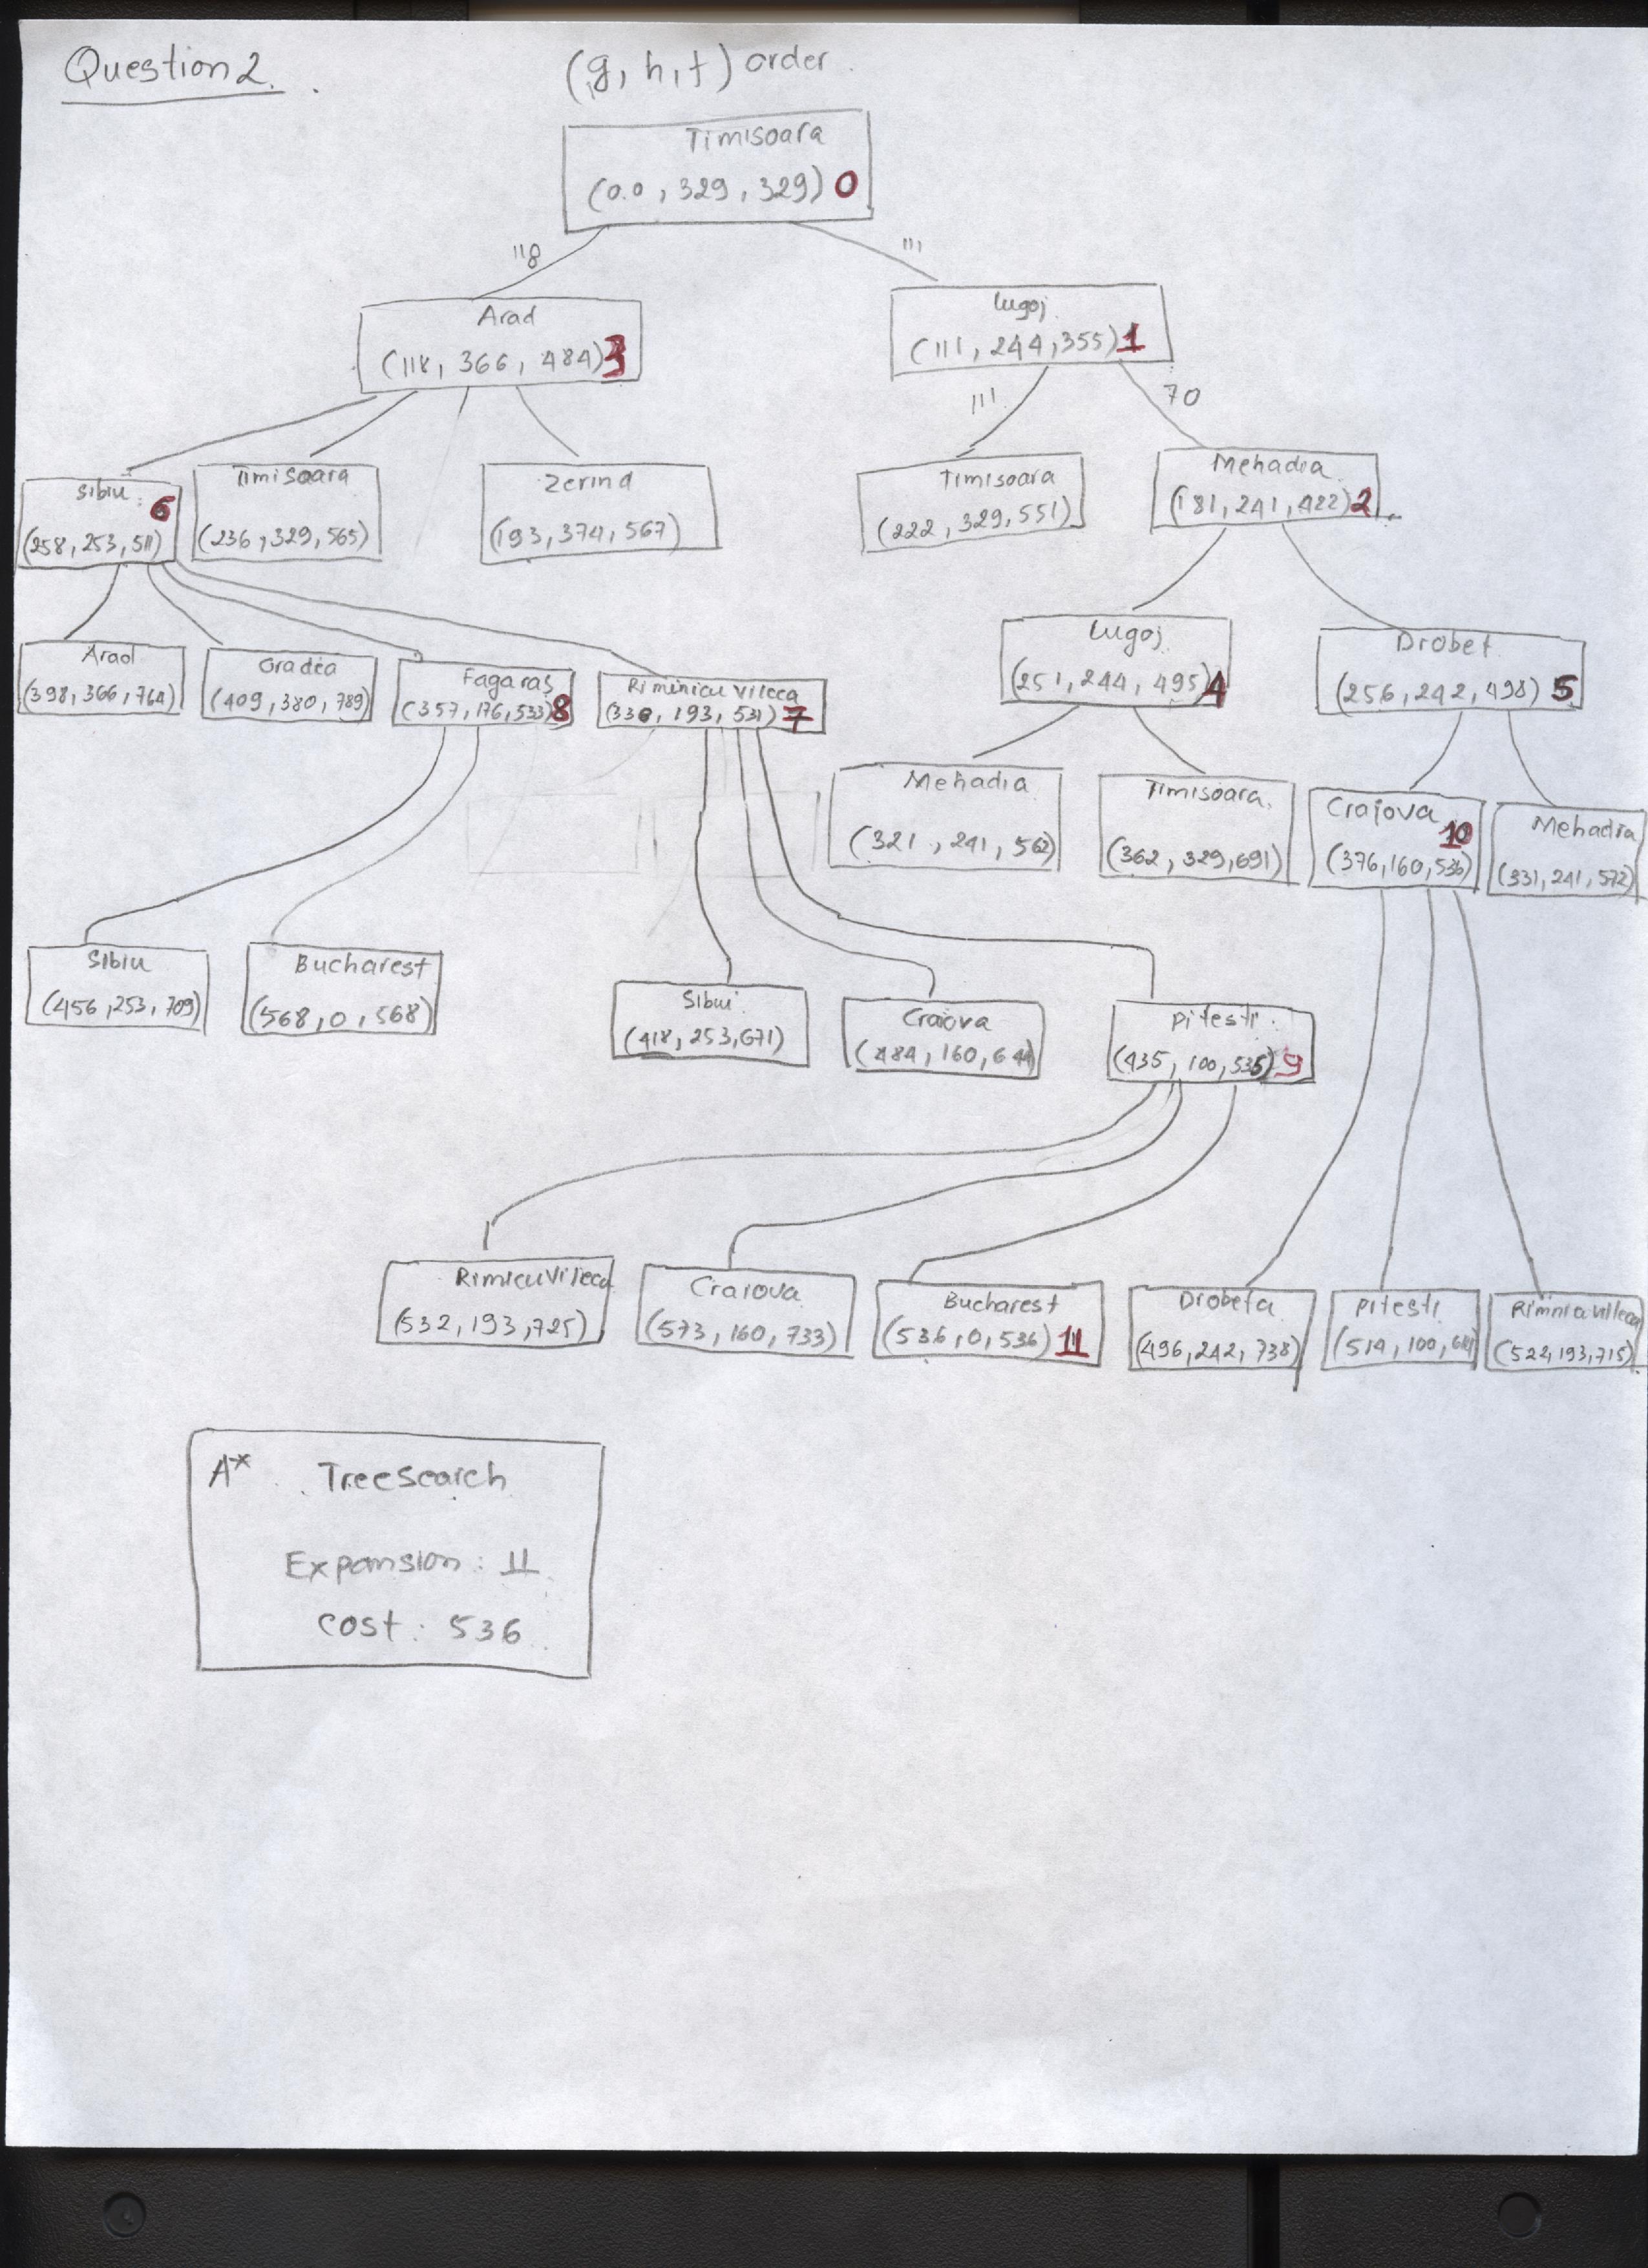 Question 2.
(g, h, f) order.
Timisoara
(0.0, 329, 329) 0
118
111
Arad
(118, 366, 484) 3
Lugoj
(111, 244, 355) 1
111
70
Sibiu 6
(258, 253, 511)
Timisoara
(236, 329, 565)
Zerind
(193, 374, 567)
Timisoara
(222, 329, 551)
Mehadia
(181, 241, 422) 2
Arad
(398, 366, 764)
Oradea
(409, 380, 789)
Fagaras
(357, 176, 533) 8
Riminicu Vileca
(338, 193, 531) 7
Lugoj
(251, 244, 495) 4
Drobet
(256, 242, 498) 5
Mehadia
(321, 241, 562)
Timisoara
(362, 329, 691)
Craiova 10
(376, 160, 536)
Mehadia
(331, 241, 572)
Sibiu
(456, 253, 709)
Bucharest
(568, 0, 568)
Sibui
(418, 253, 671)
Craiova
(484, 160, 644)
Pitesti
(435, 100, 535) 9
Rimicu Vileca
(532, 193, 725)
Craiova
(573, 160, 733)
Bucharest
(536, 0, 536) 11
Drobeta
(496, 242, 738)
Pitesti
(514, 100, 614)
Rimnicu Villeca
(522, 193, 715)
A* Treesearch
Expansion: 11
cost: 536